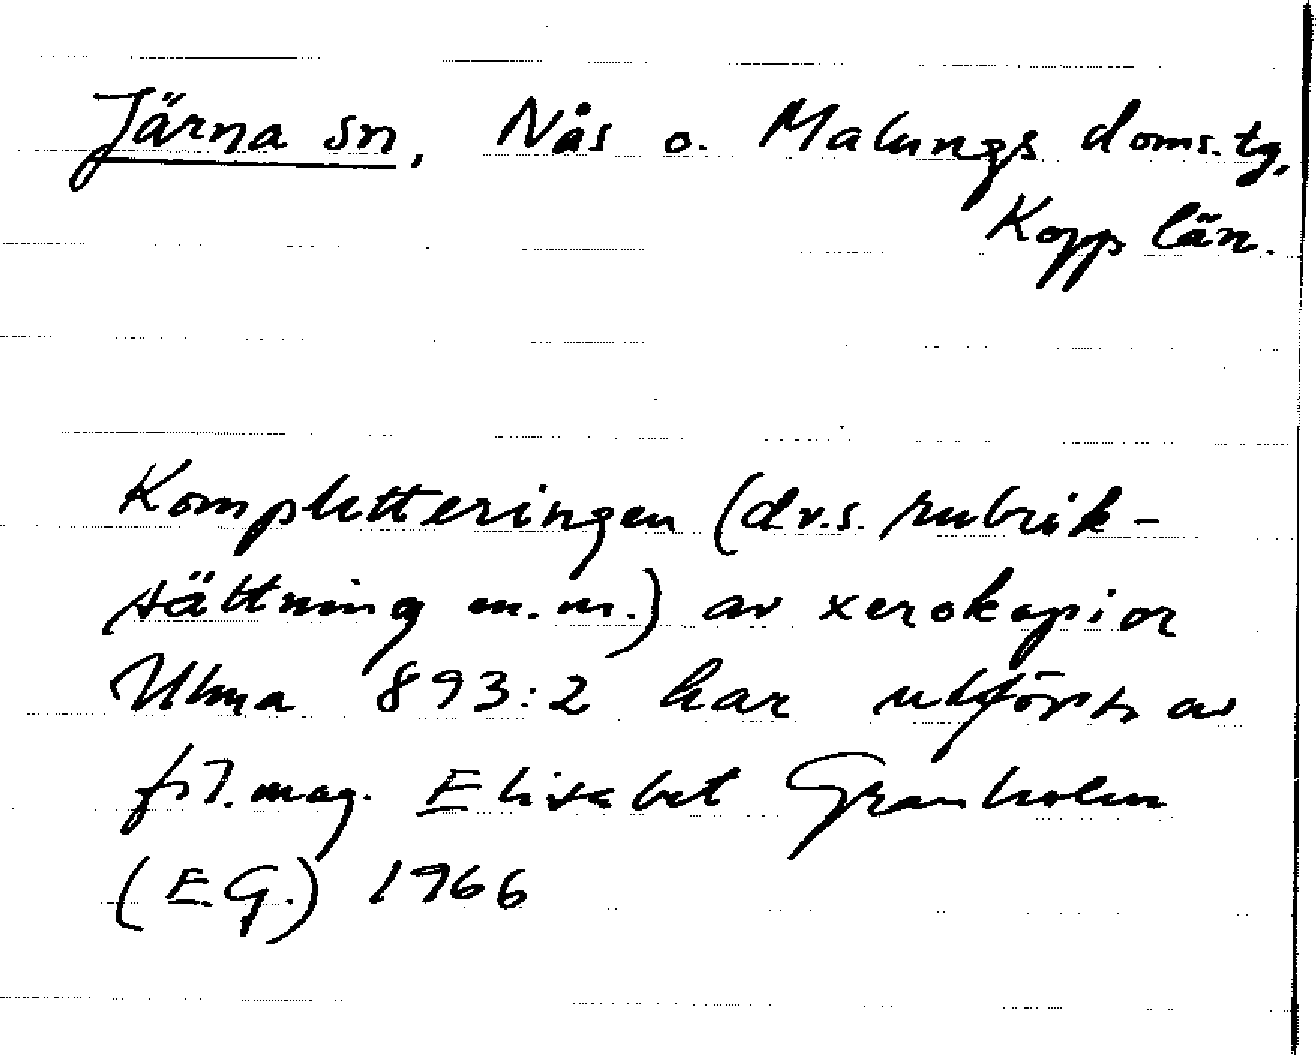 Järna sn, Nås o. Malungs doms.tg,
Kopp län.
Kompletteringen (dv.s. rubrik-
sättning m.m.) av xerokopior
Ulma 893:2 har utförts av
fil.mag. Elisabet Granholm
(EG.) 1966